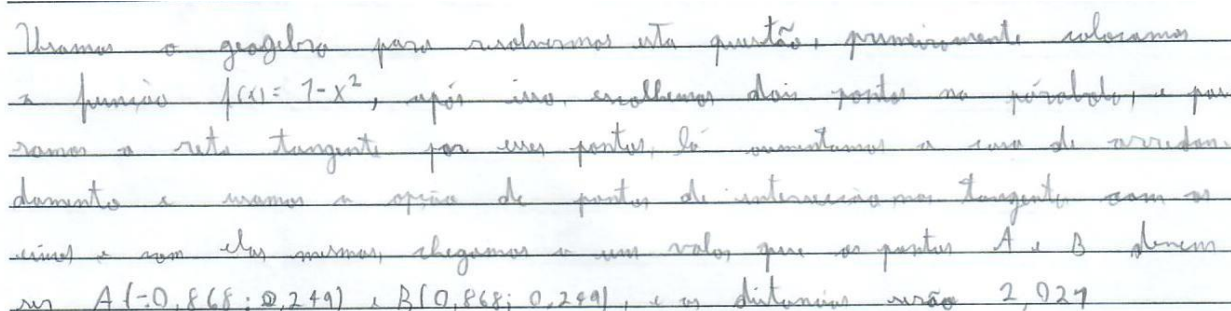 Usamos o geogebra para resolvermos esta questão, primeiramente colocamos
a função f(x)= 1-x², após isso, escolhemos dois pontos na párabola, e pas
samos a reta tangente por esses pontos, lá aumentamos a casa de arredon
damento e usamos a opção de pontos de intersecção nas tangentes com os
eixos e com elas mesmas, chegamos a um valor que os pontos A e B devem
ser A(-0,868; 0,249) e B(0,868; 0,249), e as distancias serão 2,029